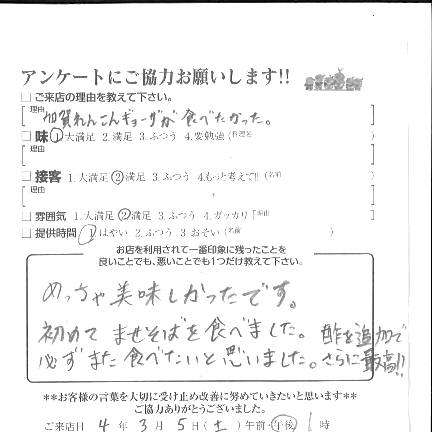 アンケートにご協力お願いします!!
□ご来店の理由を教えて下さい。
理由 加賀れんこんギョーザが食べたかった。
□味 1.大満足 2.満足 3.ふつう 4.要勉強 (料理名 )
理由
□接客 1.大満足 2.満足 3.ふつう 4.もっと考えて!! (名前 )
理由
□雰囲気 1.大満足 2.満足 3.ふつう 4.ガッカリ 「理由
□提供時間 1.はやい 2.ふつう 3.おそい (名前 )
お店を利用されて一番印象に残ったことを
良いことでも、悪いことでも1つだけ教えて下さい。
めっちゃ美味しかったです。
初めて まぜそばを食べました。 酢を追加で
必ずまた食べたいと思いました。さらに最高!!
**お客様の言葉を大切に受け止め改善に努めていきたいと思います**
ご協力ありがとうございました。
ご来店日 4年 3月 5日(土) 午前・午後 1時